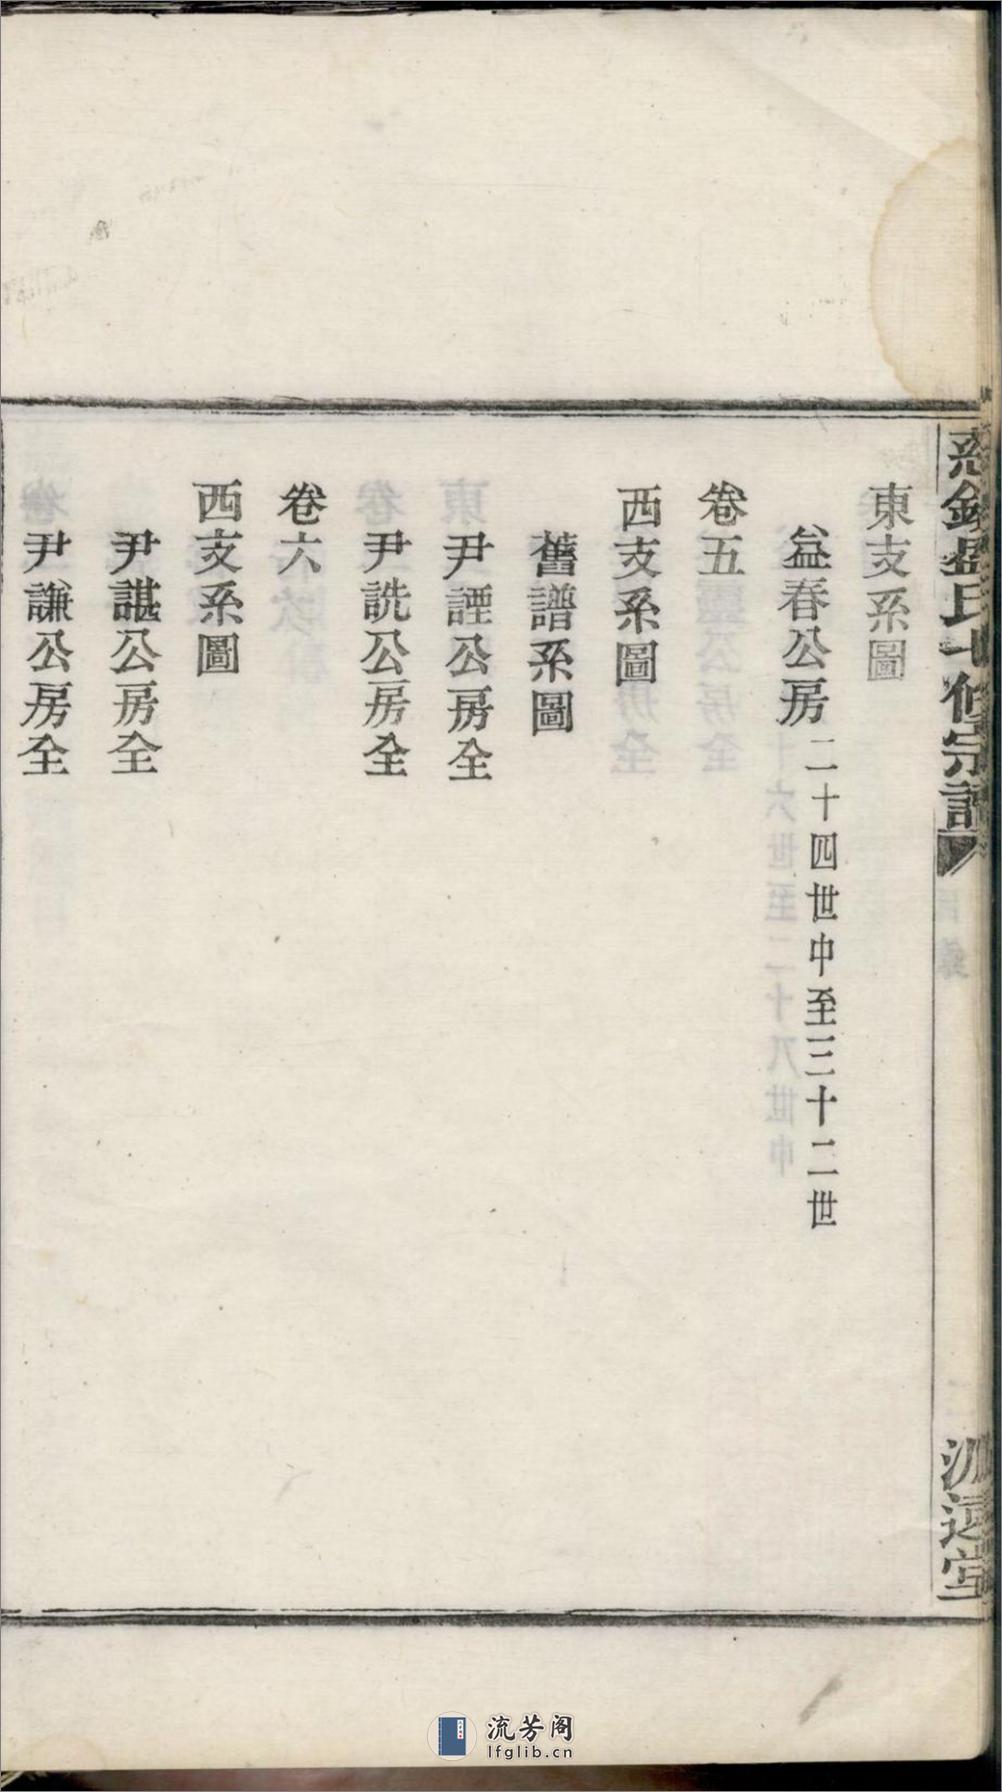 東支系圖
益春公房 二十四世中至三十二世
卷五
西支系圖
舊譜系圖
尹諲公房全
尹詵公房全
卷六
西支系圖
尹諶公房全
尹謙公房全
氏七修宗譜
流芳阁
lfglib.cn